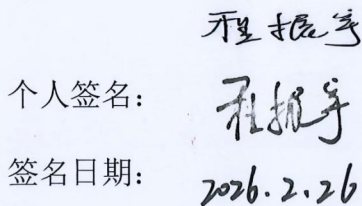 程振宇
个人签名: 程振宇
签名日期: 2026.2.26